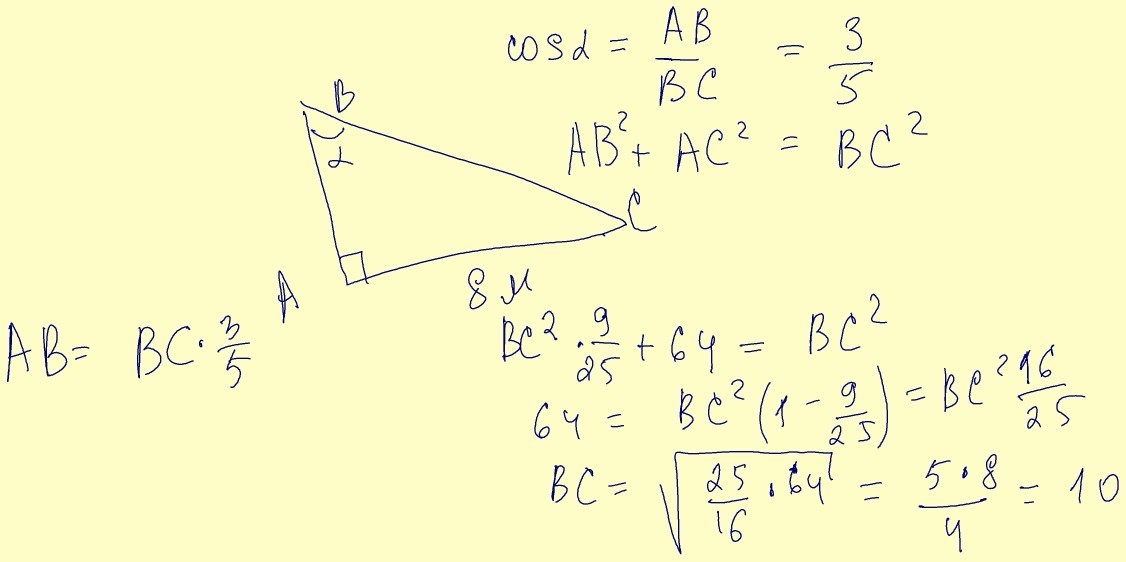 cos α = AB/BC = 3/5
AB² + AC² = BC²
B
α
C
A
8 м
AB = BC · 3/5
BC² · 9/25 + 64 = BC²
64 = BC² (1 - 9/25) = BC² 16/25
BC = √(25/16 · 64) = 5 · 8/4 = 10